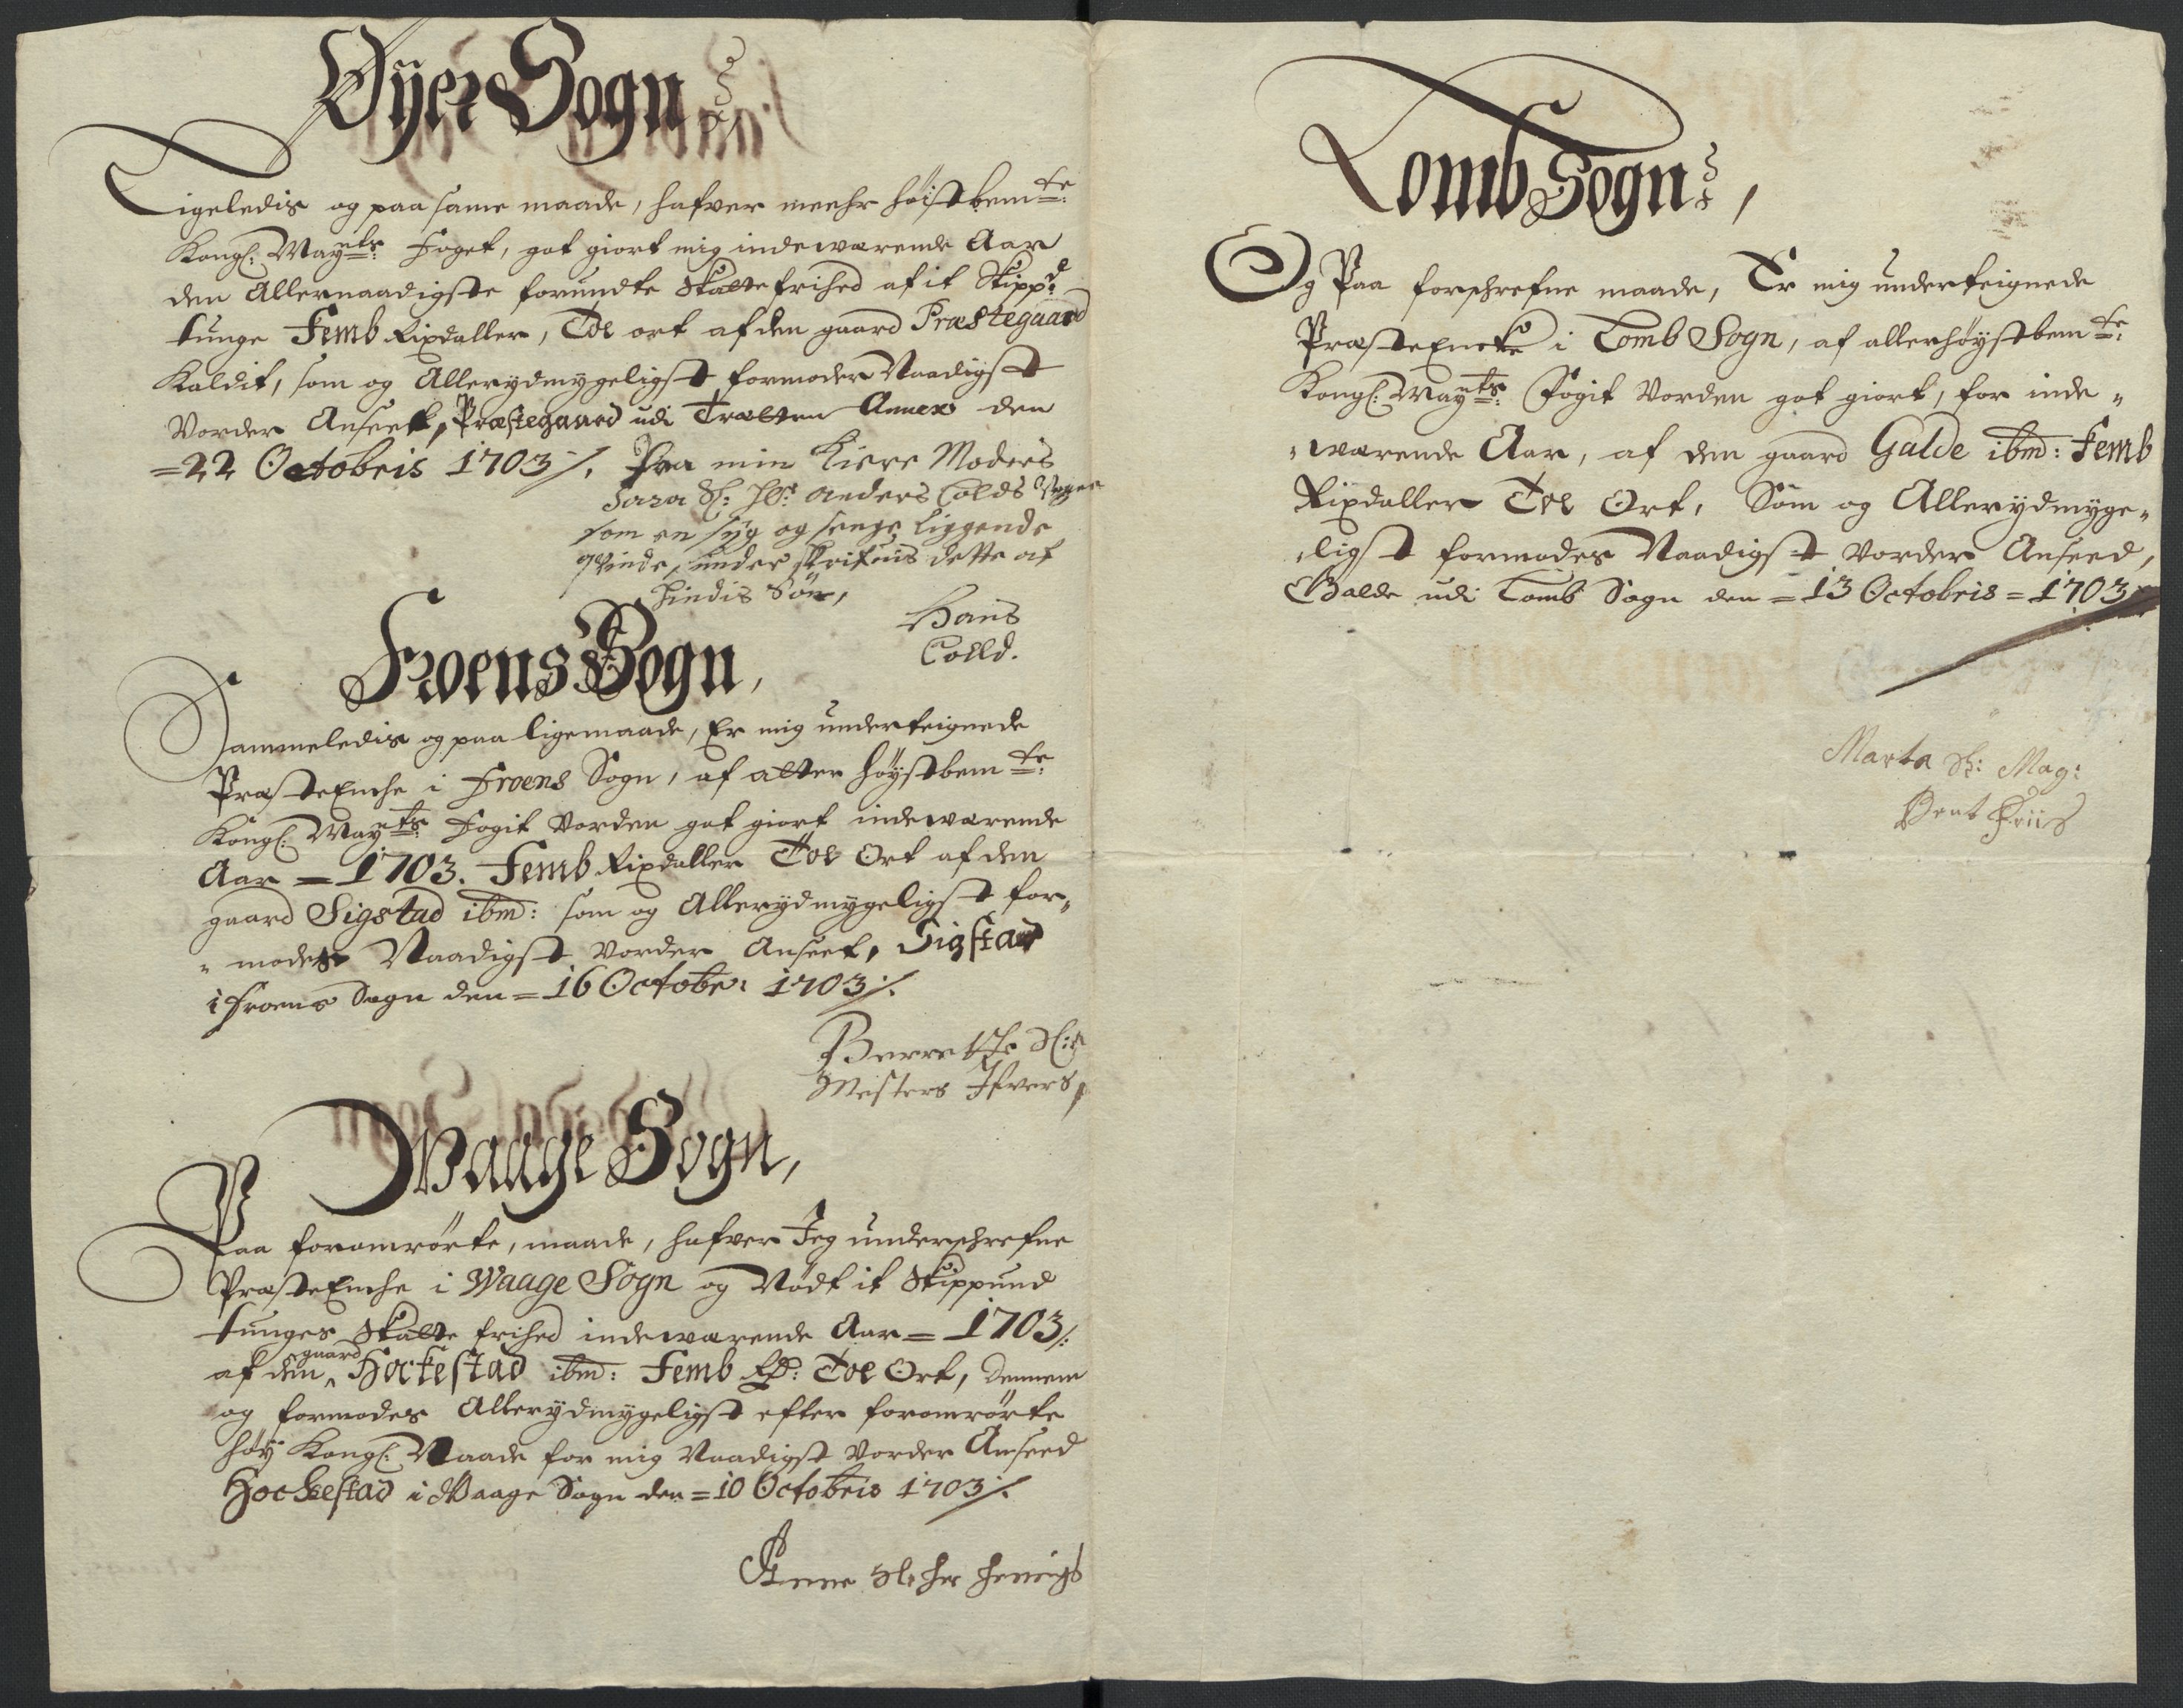 Øyer Sogn
Ligeledis og paa same maade, hafver meehr høistbemte:
Kongl: Mayts: Foget, got giort mig indeværende Aar
den Allernaadigste forundte Skattefrihed af it Skippd
tunge Femb Rixdaller, Toe ort af den gaard Præstegaard
Kaldit, som og Allerydmygeligst formoder Naadigst
Vorder Anseet, Præstegaard udi Trætten Annex den
=22 Octobris 1703 ⁒. Paa min Kiere Moders
Sara Sl: Hr: Anders Colds Vegne
som en syg og senge liggende
Qvinde, under skrifvis dette af
hindis Søn,
Hans
Colld.
Froens Sogn,
Sammeledis og paa ligemaade, Er mig underteignede
Præste Enche i Froens Sogn, af aller høystbemte:
Kongl: Mayts: Fogit Vorden got giort indeværende
Aar = 1703. Femb Rixdaller Toe Ort af den
gaard Sigstad ibm: som og Allerydmygeligst for„
„modes Naadigst Vorder Anseet, Sigstad
i Froens Sogn den = 16 Octobr: 1703 ⁒.
Berrette Sl:
Mesters Ifvers
Waage Sogn,
Paa foromrørte, maade, hafver Jeg underschrefne
Præste Enche i Waage Sogn og Nødt it Skippund
tunges Skatte frihed indeværende Aar = 1703 ⁒
af den gaard Hockestad ibm: Femb Rd: Toe Ort,
og formodes Allerydmygeligst efter foromrørte
høy Kongl: Naade for mig Naadigst Vorder Anseed
Hockestad i Waage Sogn den = 10 Octobris 1703 ⁒.
Anne Sl: her
Lomb Sogn,
Og Paa forschrefne maade, Er mig underteignede
Præste Encke i Lomb Sogn, af allerhøystbemte:
Kongl: Mayts: Fogit Vorden got giort, for inde„
„værende Aar, af den gaard Galde ibm: Femb
Rixdaller Toe Ort, Som og Allerydmyge„
„ligst formodes Naadigst Vorder Anseed,
Galde udi Lomb Sogn den = 13 Octobris = 1703
Marta Sl: Mag:
Bent Friis